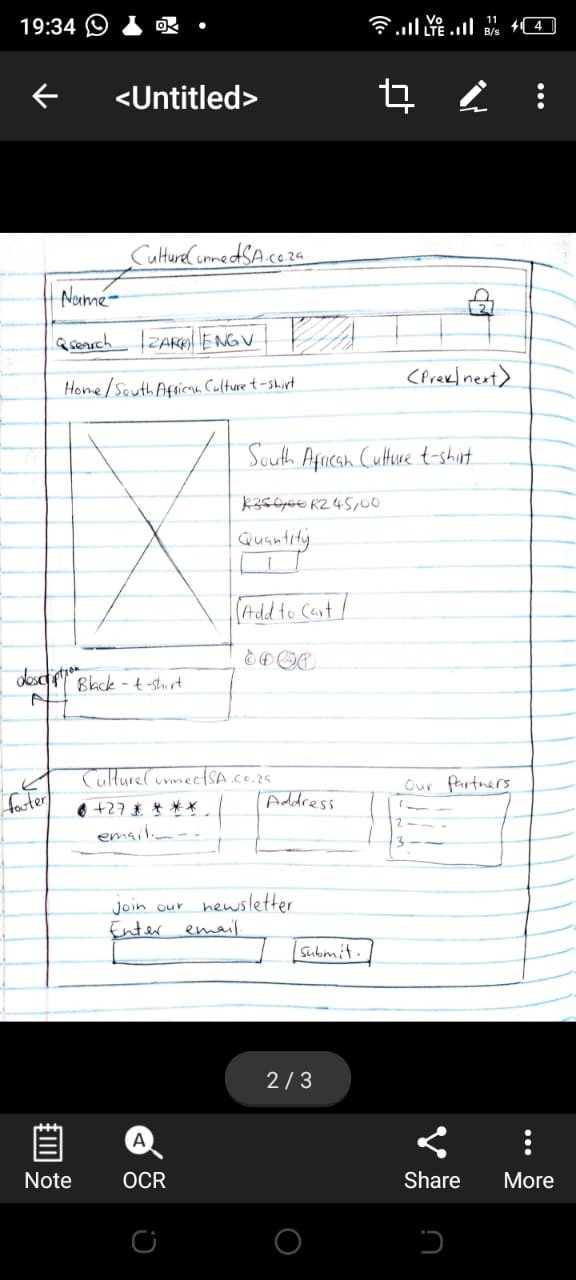 19:34
Vo LTE 11 B/s 4
<Untitled>
CultureConnectSA.co.za
Name
2
search ZAR(R) ENG V
Home/South African Culture t-shirt <Prev|next>
South African Culture t-shirt
R350,00 R245,00
Quantity
1
Add to Cart
description
Black - t-shirt
footer
CultureConnectSA.co.za
Our Partners
+27 * * * *.
Address
1
email:
2
3
join our newsletter
Enter email.
Submit.
2 / 3
A
Note OCR Share More